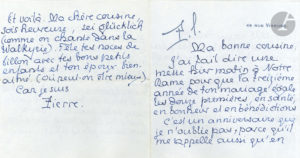 Ma bonne cousine
j'ai fait dire une
messe hier matin à Notre
Dame pour que la treizième
année de ton mariage égale
les douze premières, en santé,
en bonheur et en bénédictions
c'est un anniversaire que
je n'oublie pas, parce qu'il
me rappelle aussi qu'en
Et voilà. Ma chère cousine,
sois heureuse, sei glücklich
(comme on chante dans la
Walkyrie). Fête tes noces de
billon avec tes bons petits
enfants et ton époux bien-
aimé. (Où peut-on être mieux).
Car je suis
Pierre.